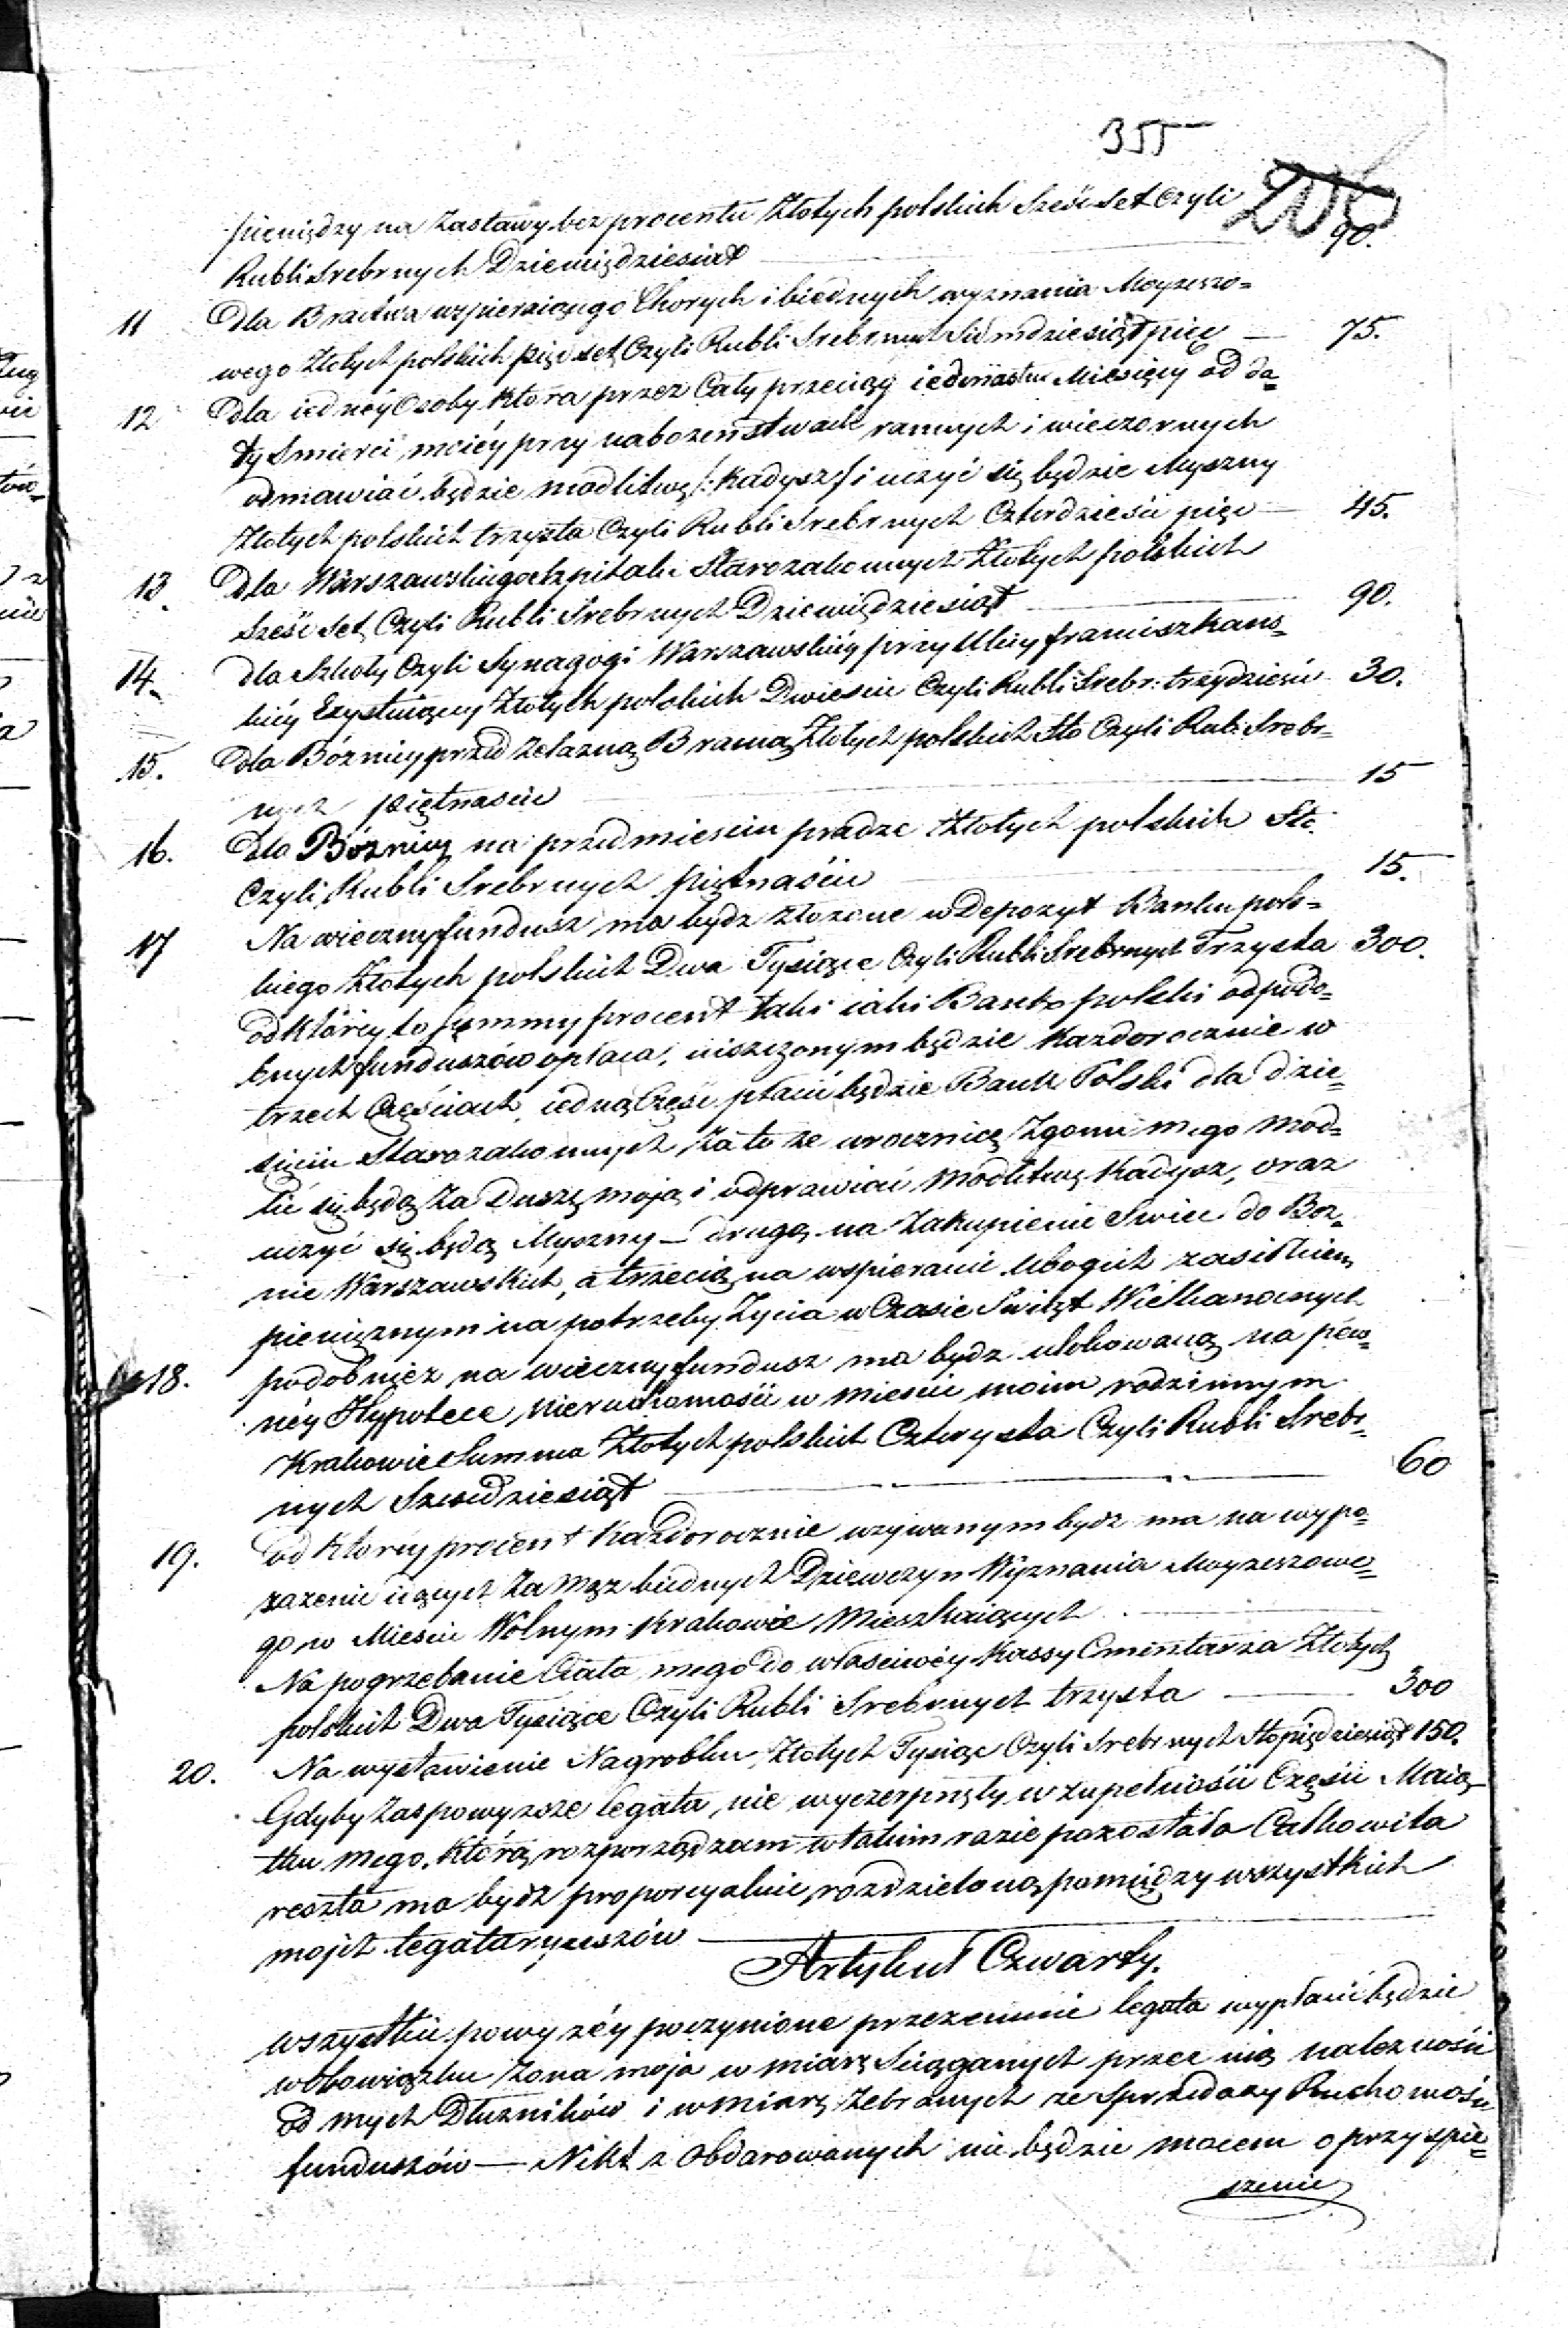 355
pieniędzy na Zastawy bez procentu Złotych polskich Sześć set Czyli
Rubli Srebrnych Dziewiędziesiąt 90.
11 dla Bractwa wspieraiącego Chorych i biednych wyznania Moyzeszo=
wego Złotych polskich pięć set Czyli Rubli Srebrnych Siedmdziesiąt pięć — 75.
12 dla iednéy Osoby która przez Cały przeciąg iedenastu Miesięcy od da=
ty Smierci moiéy przy nabożeństwach rannych i wieczornych
odmawiać będzie modlitwę /: Kadysz / i uczyć się będzie Myszny
Złotych polskich trzysta Czyli Rubli Srebrnych Czterdzieści pięć — 45.
13. dla Warszawskiego Szpitalu Starozakonnych Złotych polskich
Sześć set Czyli Rubli Srebrnych Dziewiędziesiąt 90.
14. dla Szkoły Czyli Synagogi Warszawskiéy przy Ulicy franciszkans=
kiéy Exystuiącey Złotych polskich Dwieście Czyli Rubli Srebr: trzydzieści 30.
15. dla Bóżnicy przed żelazną Bramą Złotych polskich Sto Czyli Rub: Srebr=
nych piętnaście 15
16. dla Bóżnicy na przedmieściu pradze Złotych polskich Sto
Czyli Rubli Srebrnych piętnaście 15.
17 Na wieczny fundusz ma bydz złożone w Depozyt Banku pols=
kiego Złotych polskich Dwa Tysiące Czyli Rubli Srebrnych Trzysta 300.
od któréy to summy procent taki iaki Bank polski od podo=
bnych funduszów opłaca, uiszczonym będzie Każdorocznie w
trzech Częściach, iedną Część płacić będzie Bank Polski dla dzie=
sięciu Starozakonnych, za to że w rocznicę Zgonu mego mod=
lić się będą za Duszę moją i odprawiać modlitwę Kadysz, oraz
uczyć się będą Myszny — drugą na Zakupienie Swiec do Boż=
nic Warszawskich, a trzecią na wspieranie Ubogich zasiłkiem
pieniężnym na potrzeby Życia w Czasie Swiąt Wielkanocnych
18. podobnież na wieczny fundusz ma bydz ulokowaną na pew=
néy Hypotece nieruchomości w mieście moim rodzinnym
Krakowie Summa Złotych polskich Czterysta Czyli Rubli Srebr=
nych Szescdziesiąt 60
19. od któréy procent Każdorocznie używanym bydz ma na wypo=
sażenie idących za Mąż biednych Dziewczyn Wyznania Moyżeszowe=
go w Miescie Wolnym Krakowie Mieszkaiących
Na pogrzebanie Ciała mego do właściwéy Kassy Cmintarza Złotych
polskich Dwa Tysiące Czyli Rubli Srebrnych trzysta — 300
20. Na wystawienie Nagrobku, Złotych Tysiąc Czyli Srebrnych Sto pięćdziesiąt 150.
Gdyby zaś powyższe legata, nie wyczerpnęły w zupełności Części Maią=
tku mego, którą rozporządzam w takim razie pozostała Całkowita
reszta ma bydz proporcyalnie rozdzieloną pomiędzy wszystkich
mojch legataryuszów
Artykuł Czwarty.
wszystkie powyżéy poczynione przezemnie legata wypłacić będzie
w obowiązku żona moja w miarę Sciąganych przez nią należności
od mych Dłużników i w miarę Zebranych ze sprzedaży Ruchomości
funduszów — Nikt z Obdarowanych nie będzie mocen o przyspie=
szenie